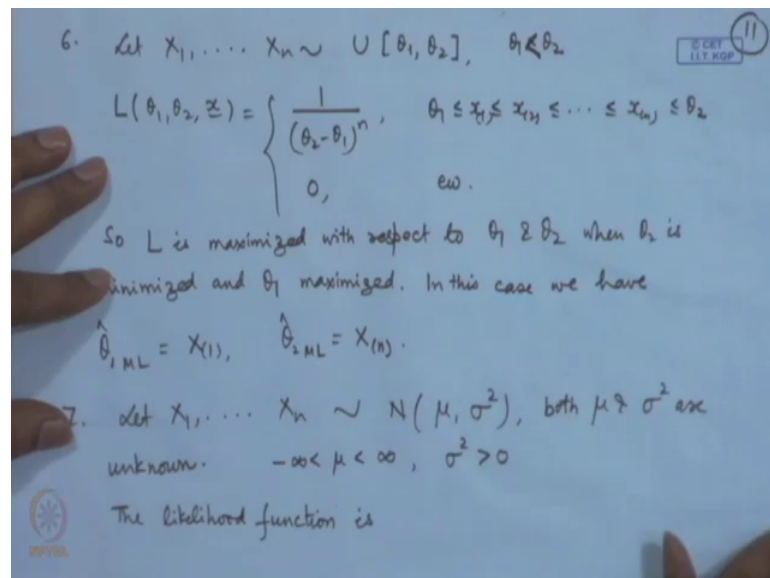 11
© CET
I.I.T. KGP
6. Let X₁, .... Xₙ ~ U [θ₁, θ₂], θ₁ < θ₂
L(θ₁, θ₂, x) = { 1 / (θ₂-θ₁)ⁿ , θ₁ ≤ x₍₁₎ ≤ x₍₂₎ ≤ ... ≤ x₍ₙ₎ ≤ θ₂
0, ew.
So L is maximized with respect to θ₁ & θ₂ when θ₂ is
inimized and θ₁ maximized. In this case we have
θ̂₁ ML = X₍₁₎, θ̂₂ ML = X₍ₙ₎.
7. Let X₁, .... Xₙ ~ N( μ, σ²), both μ & σ² are
unknown. -∞ < μ < ∞, σ² > 0
The likelihood function is
NPTEL